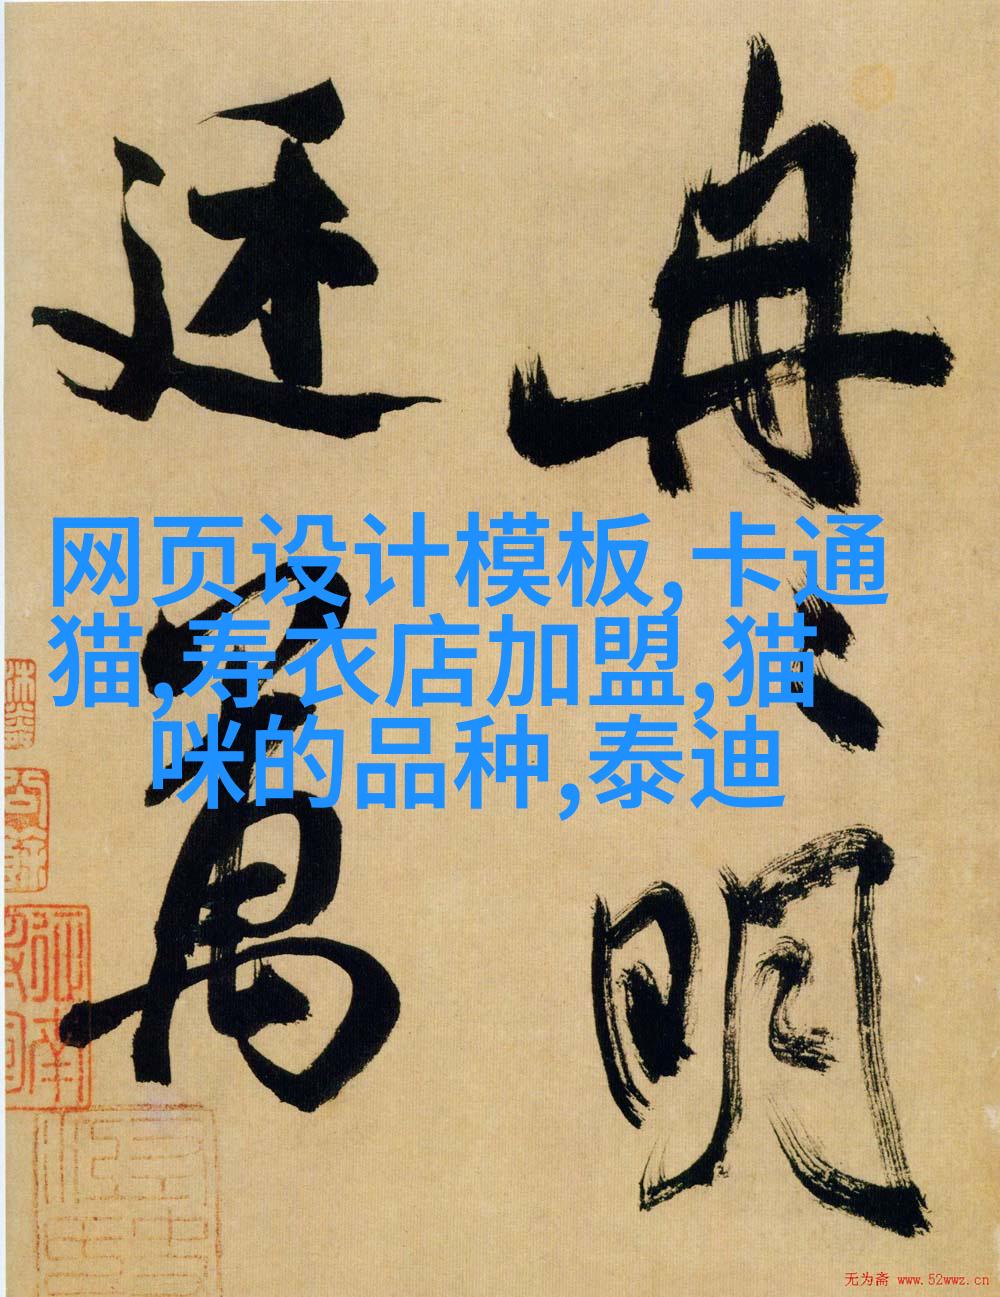 冉々明
迓萬
网页设计模板,卡通
猫,寿衣店加盟,猫
咪的品种,泰迪
无为斋 www.52wwz.cn